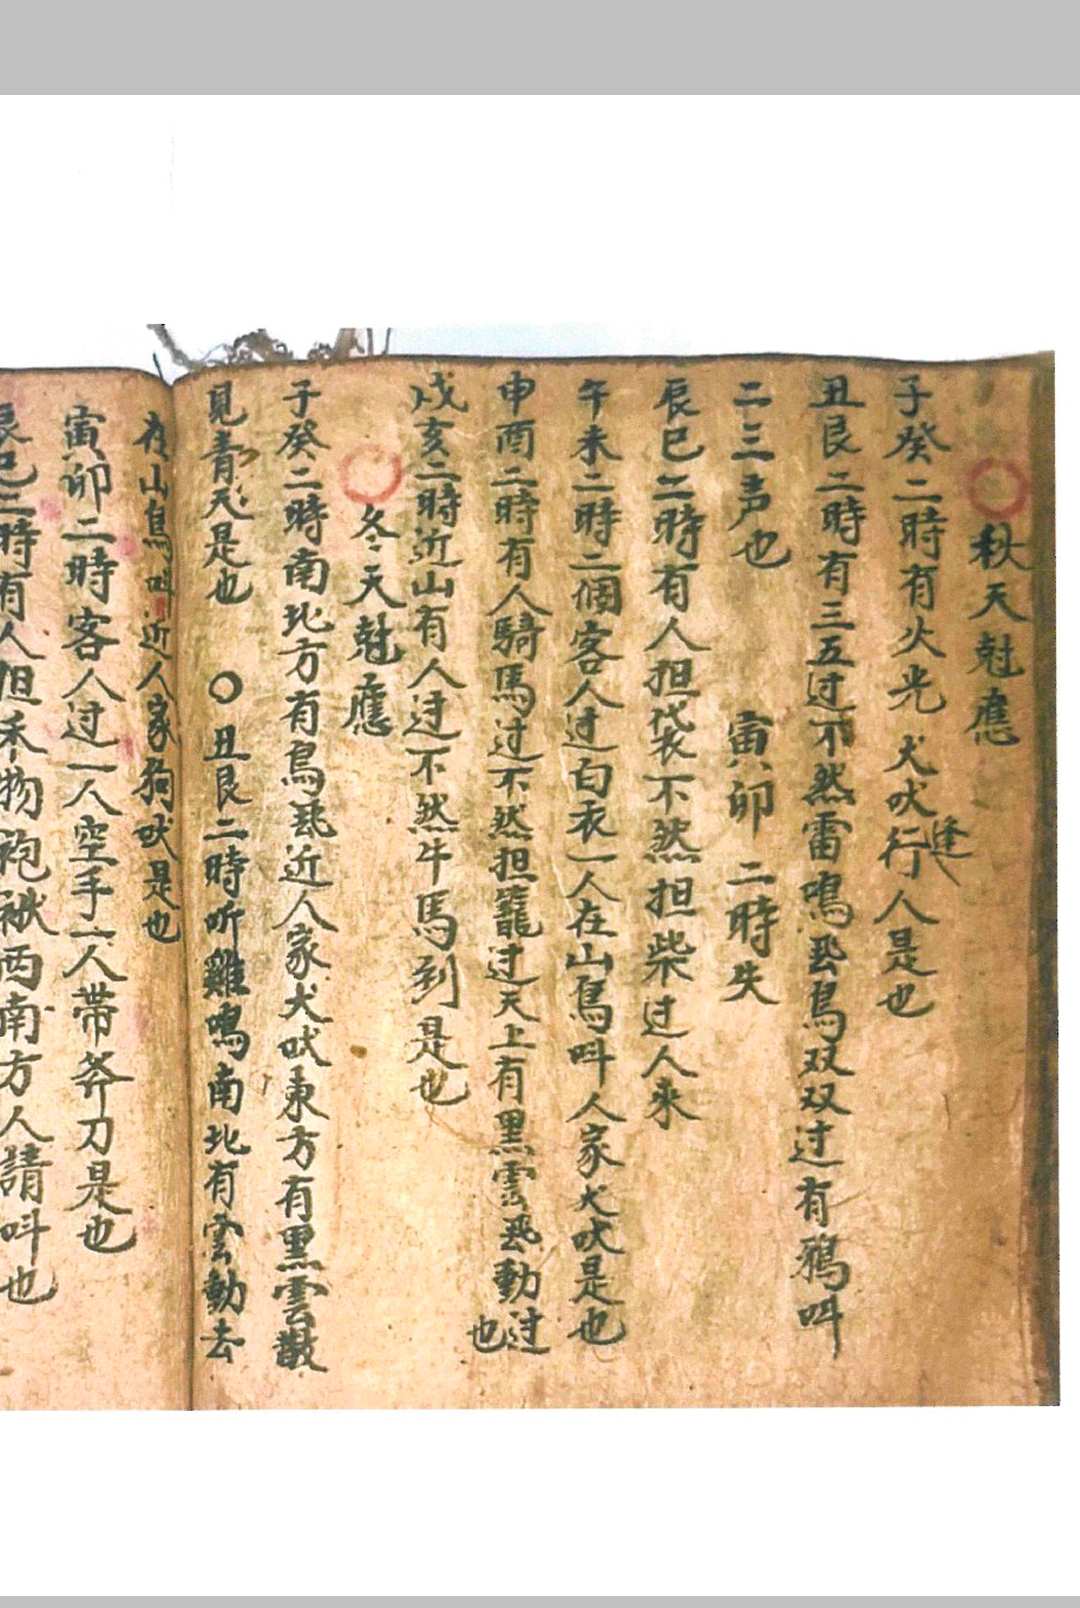 秋天尅應
子癸二時有火光犬吠逢行人是也
丑艮二時有三五过不然雷鳴飛鳥双双过有鴉叫
二三声也 寅卯二時失
辰巳二時有人担代衣不然担柴过人来
午未二時二個客人过白衣一人在山鳥叫人家犬吠是也
申酉二時有人騎馬过不然担籠过天上有黑雲飛動过也
戌亥二時近山有人过不然牛馬到是也
冬天尅應
子癸二時南北方有鳥飛近人家犬吠東方有黑雲散
見青天是也 〇丑艮二時听雞鳴南北有雲動去
山鳥叫近人家狗吠是也
寅卯二時客人过一人空手一人帶斧刀是也
辰巳二時有人担禾物袍袱西南方人請叫也